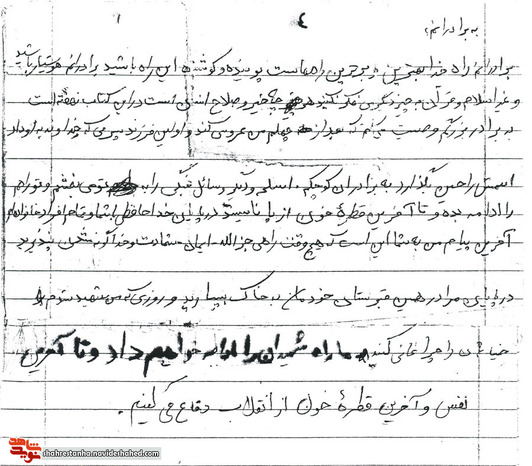 ۱ ٤
به برادرانم:
برادرانم راه خدا بهترین و برترین راههاست پوینده و کوشنده این راه باشید برادرانم هوشیار باشید
و غیر اسلام و قرآن به چیز دیگری فکر نکنید هر چه خیر و صلاح انسانی است در این کتاب نهفته است
به برادر بزرگم وصیت میکنم که بعد از چهلم من عروسی کند و اولین فرزند پسری که خداوند به او داد
اسمش را حسین بگذارد به برادران کوچکم، اسلحه و دیگر وسائل جنگی را به تو می بخشم و تو راهم
را ادامه بده و تا آخرین قطره خونی از پا نایست در پایان خداحافظی با شما و تمام افراد خانواده ام
آخرین پیام من به شما این است که هیچ وقت راهی جز الله، ایمان، شهادت و خداگونه شدن نپذیرید
در پایان مرا در همین قبرستانی خودمان به خاک بسپارید و روزی که من شهید شدم
خیابان را چراغانی کنید ما راه شهیدان را ادامه خواهیم داد و تا آخرین
نفس و آخرین قطرهٔ خون از انقلاب دفاع می کنیم.
شاهد
نوید
shahrestanha.navideshahed.com